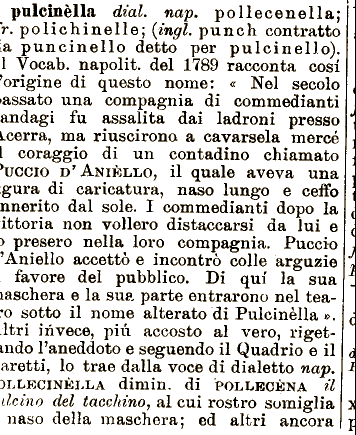 pulcinèlla dial. nap. pollecenella;
fr. polichinelle; (ingl. punch contratto
da puncinello detto per pulcinello).
Il Vocab. napolit. del 1789 racconta cosí
l'origine di questo nome: « Nel secolo
passato una compagnia di commedianti
andagi fu assalita dai ladroni presso
Acerra, ma riuscirono a cavarsela mercé
il coraggio di un contadino chiamato
PUCCIO D'ANIÈLLO, il quale aveva una
figura di caricatura, naso lungo e ceffo
annerito dal sole. I commedianti dopo la
vittoria non vollero distaccarsi da lui e
lo presero nella loro compagnia. Puccio
d'Aniello accettò e incontrò colle arguzie
il favore del pubblico. Di quí la sua
maschera e la sua parte entrarono nel tea-
tro sotto il nome alterato di Pulcinèlla ».
Altri invece, piú accosto al vero, riget-
tando l'aneddoto e seguendo il Quadrio e il
Baretti, lo trae dalla voce di dialetto nap.
POLLECINÈLLA dimin. di POLLECÈNA il
pulcino del tacchino, al cui rostro somiglia
il naso della maschera; ed altri ancora